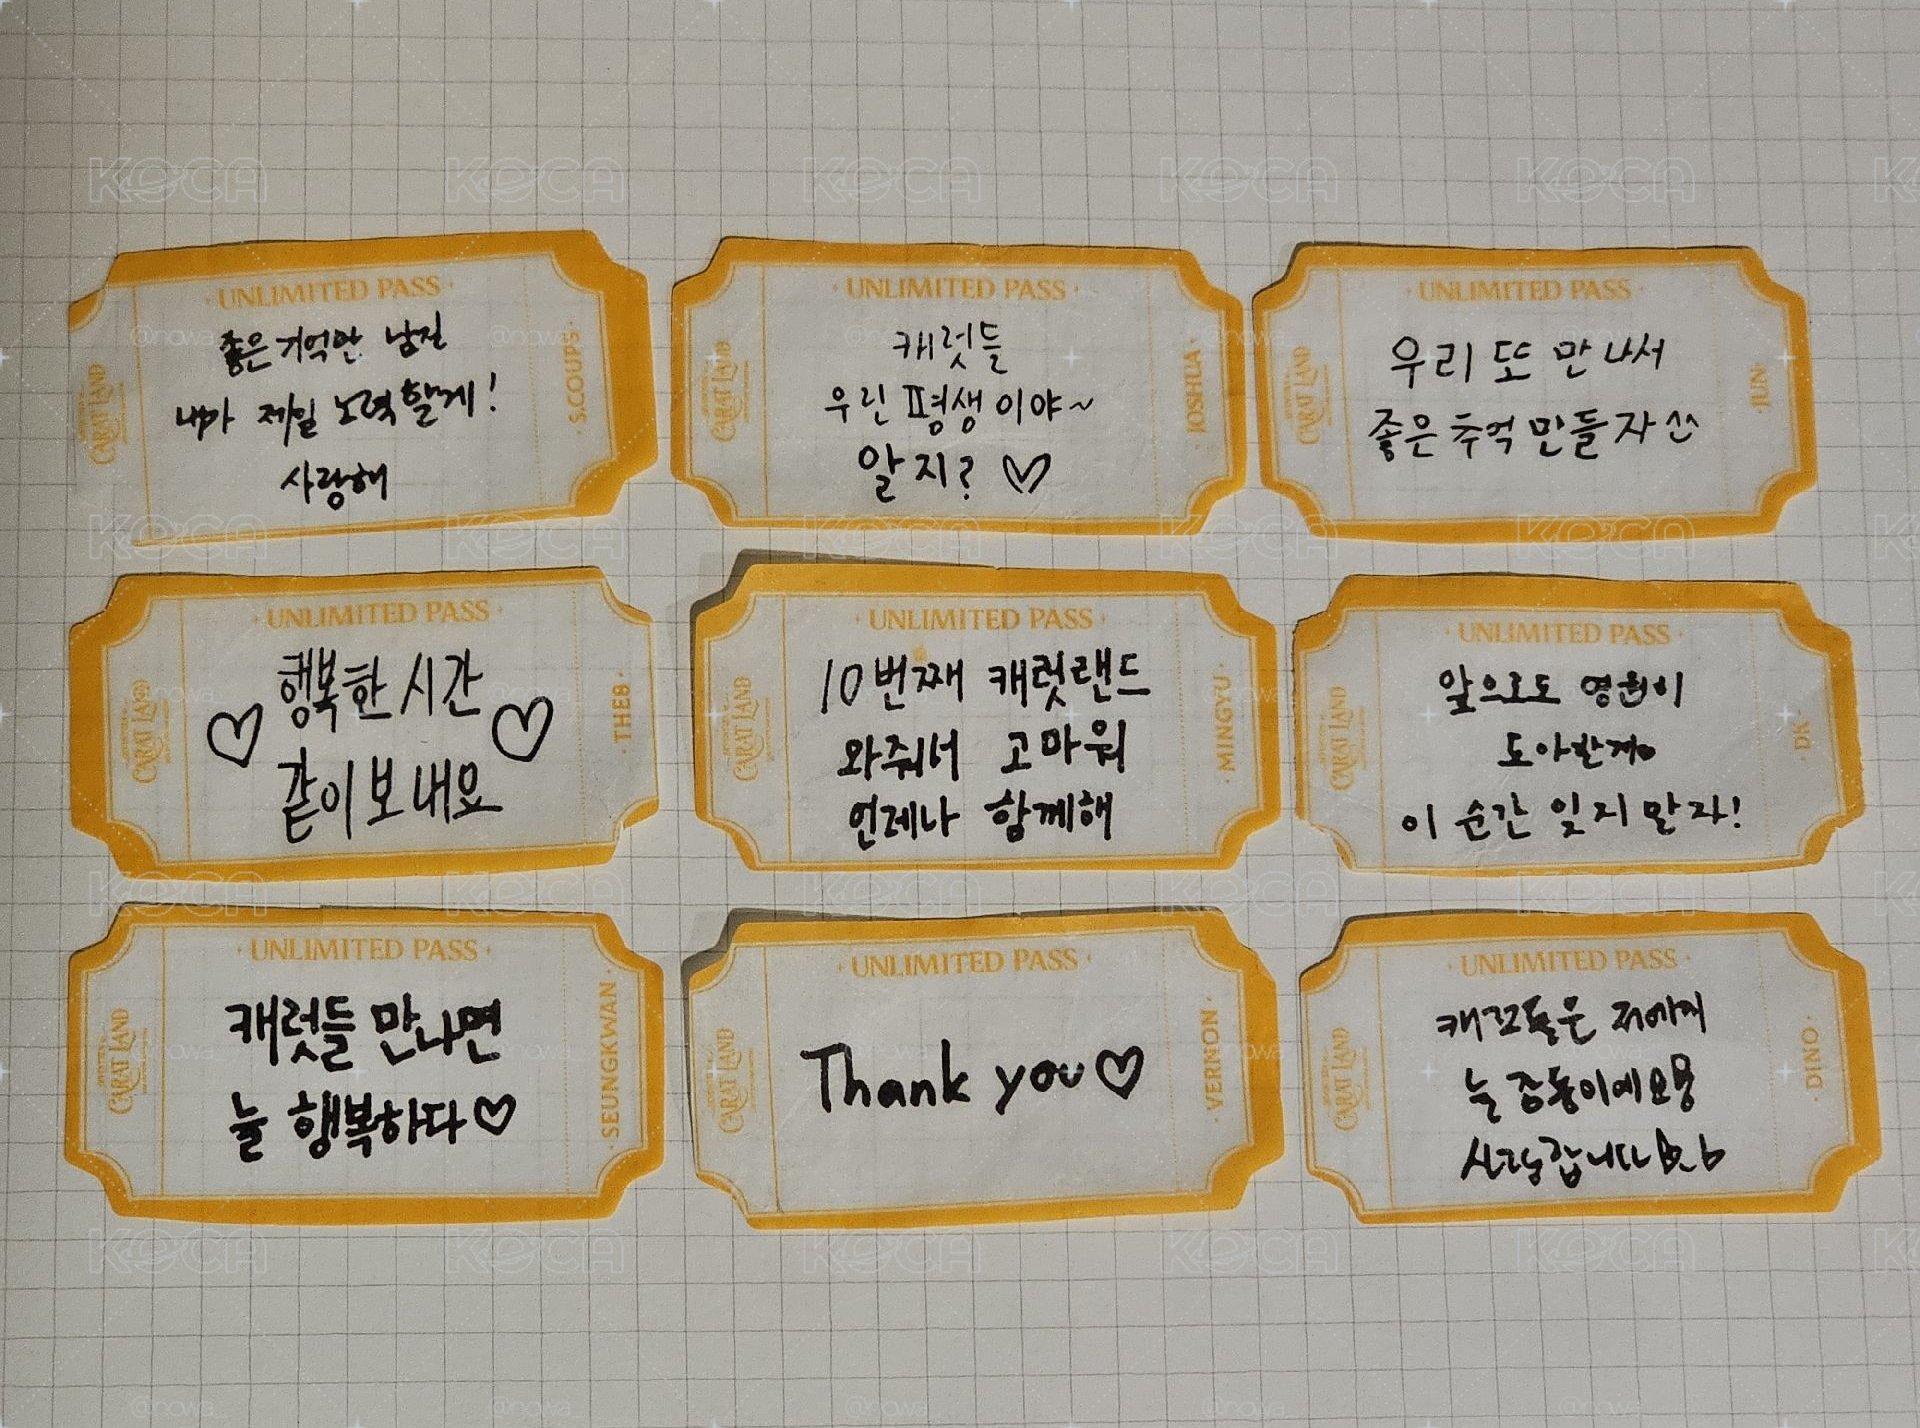 UNLIMITED PASS
좋은 기억만 남길
내가 제일 노력할게!
사랑해
CARAT LAND
S.COUPS
UNLIMITED PASS
캐럿들
우린 평생이야~
알지? ♡
CARAT LAND
JOSHUA
UNLIMITED PASS
우리 또 만나서
좋은 추억 만들자 ^^
CARAT LAND
JUN
UNLIMITED PASS
♡ 행복한 시간 ♡
같이 보내요
CARAT LAND
THE8
UNLIMITED PASS
10번째 캐럿랜드
와줘서 고마워
언제나 함께해
CARAT LAND
MINGYU
UNLIMITED PASS
앞으로도 영원히
이 순간 잊지 말자!
CARAT LAND
DK
UNLIMITED PASS
캐럿들 만나면
늘 행복하다♡
CARAT LAND
SEUNGKWAN
UNLIMITED PASS
Thank you♡
CARAT LAND
VERNON
UNLIMITED PASS
저에게
늘
사랑합니다
CARAT LAND
DINO
KOCA
@nowa_